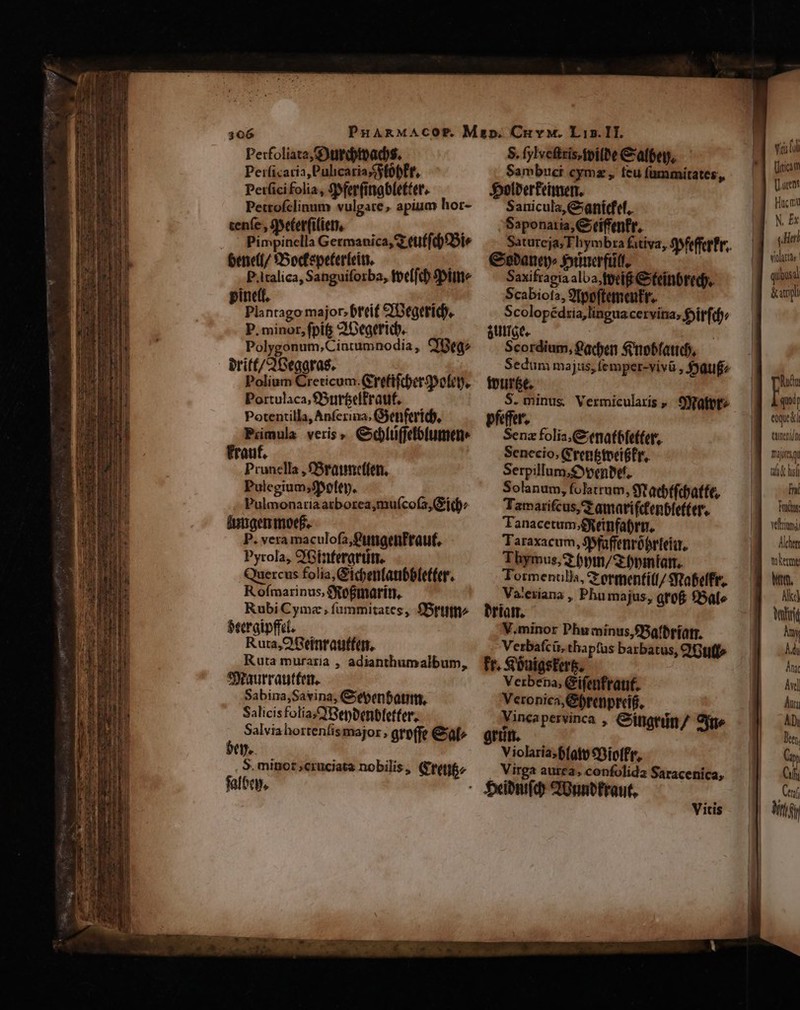 306 PHARMACOP. MED. CHYM. LIB. II.
Perfoliata, Durchwachs.
Persicaria, Pulicaria, Flöhkr.
Persici folia, Pfersingbletter.
Petroselinum vulgare, apium hor-
tense, Petersilien.
Pimpinella Germanica, Teutsch Bi-
benell/ Bockspeterlein.
P. Italica, Sanguisorba, welsch Pim-
pinell.
Plantago major, breit Wegerich.
P. minor, spitz Wegerich.
Polygonum, Cintumnodia, Weg-
dritt/ Weggras.
Polium Creticum. Cretischer Poley.
Portulaca, Burtzelkraut.
Potentilla, Anserina, Genserich.
Primula veris, Schlüsselblumen-
kraut.
Prunella, Braunellen.
Pulegium, Poley.
Pulmonaria arborea, muscosa, Eich-
lungen moeß.
P. vera maculosa, Lungenkraut.
Pyrola, Wintergrün.
Quercus folia, Eichenlaubbletter.
Rosmarinus, Roßmarin.
Rubi Cymæ, summitates, Brum-
beergipffel.
Ruta, Weinrautten.
Ruta muraria, adianthum album,
Maurrautten.
Sabina, Savina, Sevenbaum.
Salicis folia, Weydenbletter.
Salvia hortensis major, grosse Sal-
bey.
S. minor, cruciata nobilis, Creutz-
salbey.
S. sylvestris, wilde Salbey.
Sambuci cymæ, seu summitates,
Holderkeimen.
Sanicula, Sanickel.
Saponaria, Seiffenkr.
Satureja, Thymbra sativa, Pfefferkr.
Sedaney- Hünerfüll.
Saxifragia alba, weiß Steinbrech.
Scabiosa, Apostemenkr.
Scolopēdria, lingua cervina, Hirsch-
zunge.
Scordium, Lachen Knoblauch.
Sedum majus, semper-vivū, Hauß-
wurtze.
S. minus. Vermicularis, Mawr-
pfeffer.
Senæ folia, Senatbletter.
Senecio, Creutzweißkr.
Serpillum, Ovendel.
Solanum, solatrum, Nachtschatte.
Tamariscus, Tamarisckenbletter.
Tanacetum, Reinfahrn.
Taraxacum, Pfaffenröhrlein.
Thymus, Thym/ Thymian.
Tormentilla, Tormentill/ Nabelkr.
Valeriana, Phu majus, groß Bal-
drian.
V. minor Phu minus, Baldrian.
Verbascū, thapsus barbatus, Wull-
kr. Königskertz.
Verbena, Eisenkraut.
Veronica, Ehrenpreiß.
Vinca pervinca, Singrün/ In-
grün.
Violaria, blaw Violkr.
Virga aurea, consolida Saracenica,
Heidnisch Wundkraut.
Vitis